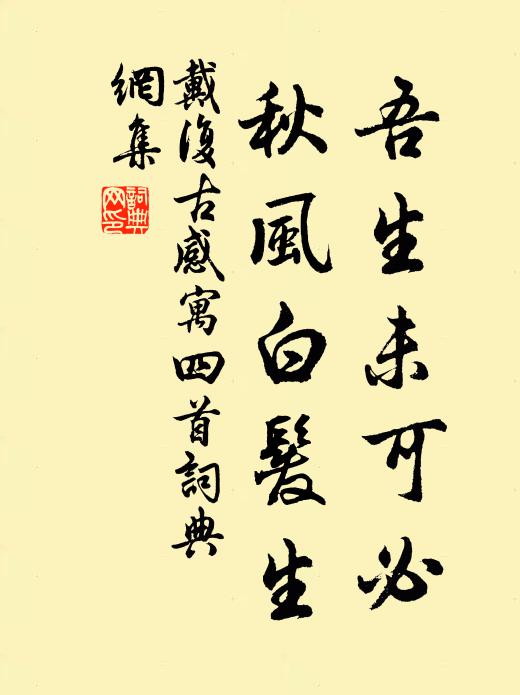 吾生未可必
秋風白髮生
戴復古感寓四首詞典
網集
詞典
网印